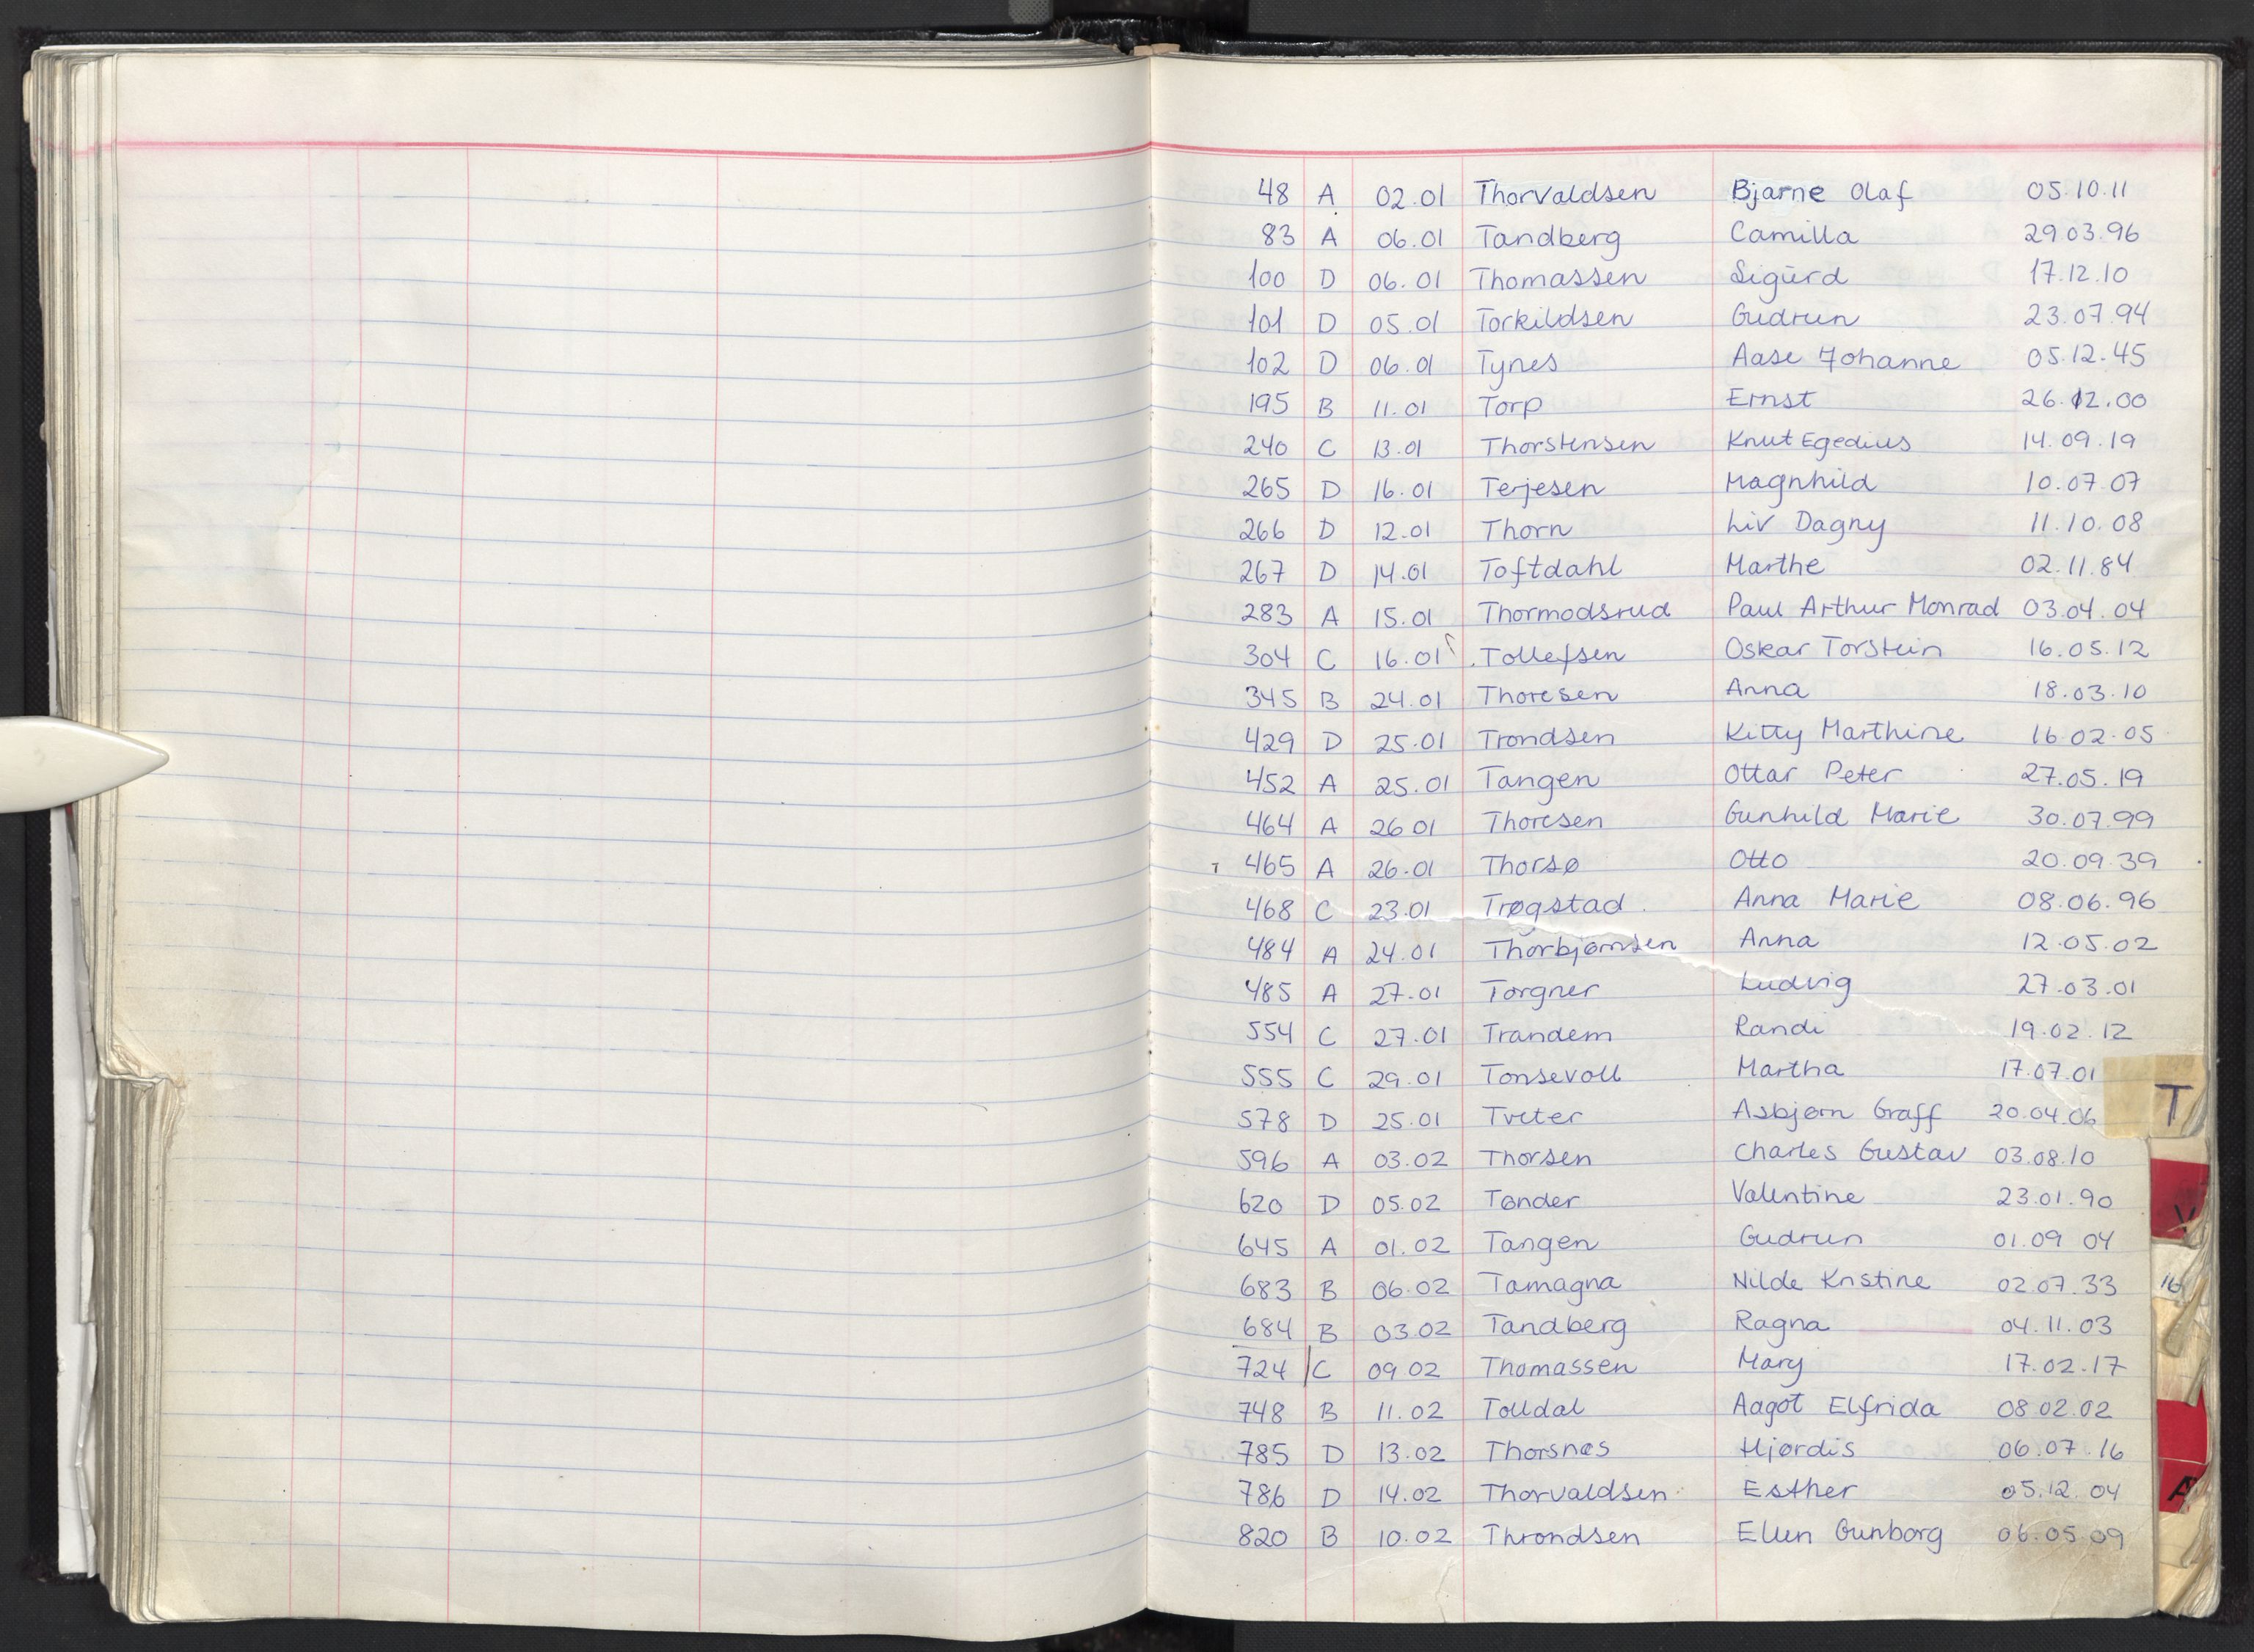 48 A 02.01 Thorvaldsen Bjarne Olaf 05.10.11
83 A 06.01 Tandberg Camilla 29.03.96
100 D 06.01 Thomassen Sigurd 17.12.10
101 D 05.01 Torkildsen Gudrun 23.07.94
102 D 06.01 Tynes Aase Johanne 05.12.45
195 B 11.01 Torp Ernst 26.12.00
240 C 13.01 Thorstensen Knut Egedius 14.09.19
265 D 16.01 Terjesen Magnhild 10.07.07
266 D 12.01 Thorn Liv Dagny 11.10.08
267 D 14.01 Toftdahl Marthe 02.11.84
283 A 15.01 Thormodsrud Paul Arthur Monrad 03.04.04
304 C 16.01 Tollefsen Oskar Torstein 16.05.12
345 B 24.01 Thoresen Anna 18.03.10
429 D 25.01 Trondsen Kitty Marthine 16.02.05
452 A 25.01 Tangen Ottar Peter 27.05.19
464 A 26.01 Thoresen Gunhild Marie 30.07.99
465 A 26.01 Thorsø Otto 20.09.39
468 C 23.01 Trøgstad Anna Marie 08.06.96
484 A 24.01 Thorbjørnsen Anna 12.05.02
485 A 27.01 Torgner Ludvig 27.03.01
554 C 27.01 Trandem Randi 19.02.12
555 C 29.01 Tonsevoll Martha 17.07.01
T
578 D 25.01 Tveter Asbjørn Graff 20.04.06
596 A 03.02 Thorsen Charles Gustav 03.08.10
620 D 05.02 Tønder Valentine 23.01.90
V
645 A 01.02 Tangen Gudrun 01.09 04
683 B 06.02 Tamagna Nilde Kristine 02.07.33
16
684 B 03.02 Tandberg Ragna 04.11.03
724 C 09 02 Thomassen Mary 17.02.17
748 B 11.02 Tolldal Aagot Elfrida 08 02.02
785 D 13.02 Thorsnes Hjørdis 06.07.16
786 D 14.02 Thorvaldsen Esther 05.12.04
A
820 B 10.02 Throndsen Ellen Gunborg 06.05.09